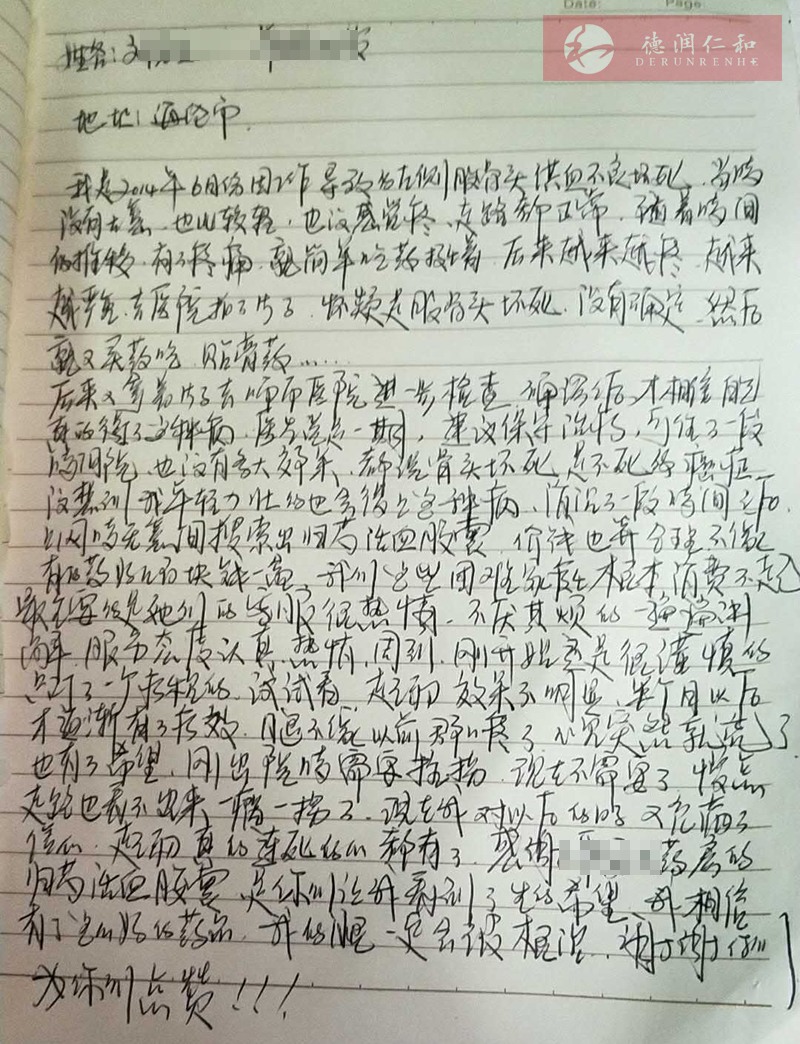 Date: Page:
德润仁和
DERUNRENHE
姓名:
地址:海伦市.
我是2014年6月份因工作导致的左侧股骨头供血不良坏死,当时
没有大碍,也比较轻,也没感觉疼,走路都正常,随着时间
的推移,有了疼痛,就简单吃药挺着,后来越来越疼,越来
越严重,去医院拍了片子,怀疑是股骨头坏死,没有确定,然后
就又买药吃,贴膏药……
后来又拿着片子去哈市医院进一步检查,确诊后,才相信自己
真的得了这种病,医生说是一期,建议保守治疗,
时间,也没有多大效果,都说骨头坏死是不死的癌症
没想到我年轻力壮的也会得上这种病,消沉了一段时间之后,
上网时无意间搜索出归芍活血胶囊,价钱也算合理不像
有的药好几百块钱一盒,我们这些困难家庭根本消费不起
最主要的是她们的客服很热情,不厌其烦的一遍遍讲
解,服务态度认真,热情,周到,刚开始还是很谨慎的
只订了一个疗程的,试试看,起初效果不明显,半个月以后
才逐渐有了疗效,腿不像以前那么疼了,心里突然就亮了
也有了希望,刚出院时需要拄拐,现在不需要了,慢点
走路也看不出来一瘸一拐了,现在我对以后的 又充满了
信心,起初真的连死的心都有了,感谢 药房的
归芍活血胶囊,是你们让我看到了生的希望,我相信
有了这么好的药品,我的腿一定会被根治,谢谢你们
为你们点赞!!!